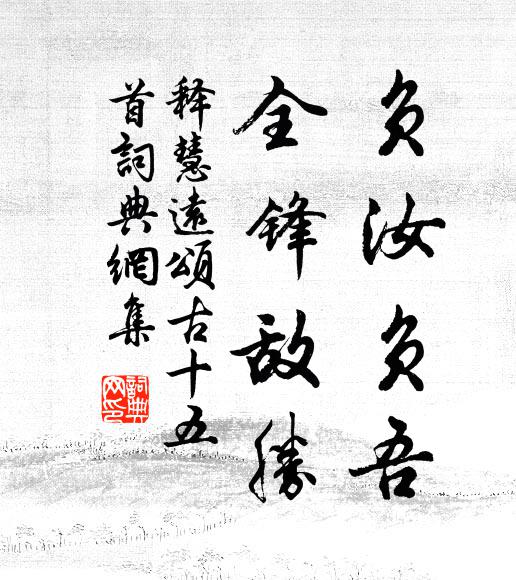 负汝负吾
全锋敌勝
释慧遠頌古十五
首詞典網集
詞典
网印